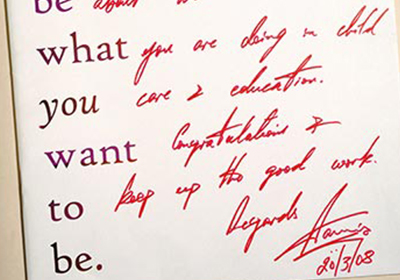 be about
what you are doing in child
you care & education.
want Congratulations &
to keep up the good work.
be. Regards
20/3/08